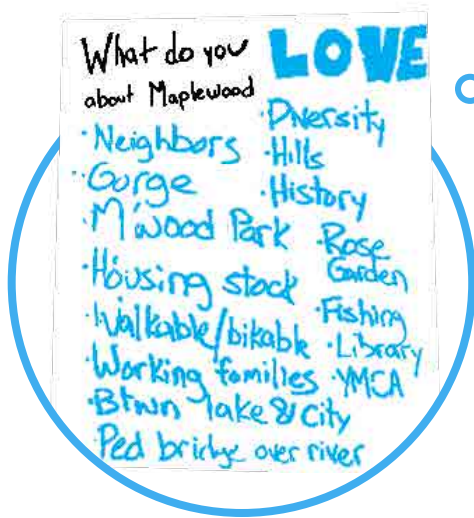 What do you LOVE
about Maplewood
· Neighbors
· Gorge
· M'wood Park
· Housing stock
· Walkable/bikable
· Working families
· Btwn lake & City
· Ped bridge over river
· Diversity
· Hills
· History
· Rose
Garden
· Fishing
· Library
· YMCA